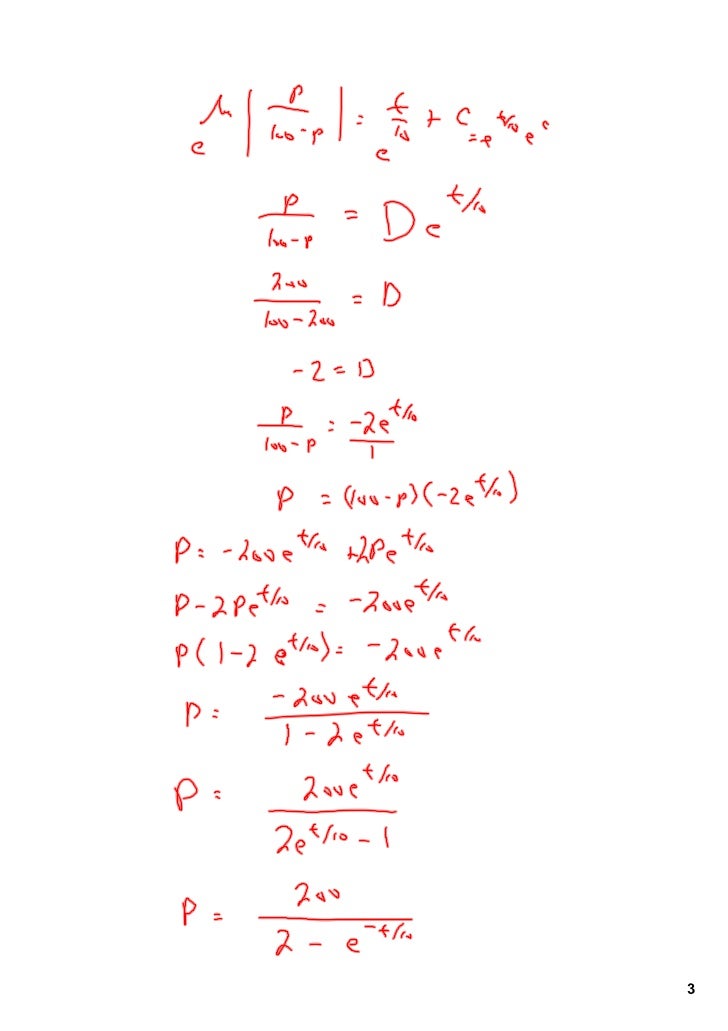 e^ln|P/(100-P)| = e^(t/10 + C) = e^(t/10) e^c
P/(100-P) = De^(t/10)
200/(100-200) = D
-2 = D
P/(100-P) = -2e^(t/10)/1
P = (100-P)(-2e^(t/10))
P = -200e^(t/10) +2Pe^(t/10)
P-2Pe^(t/10) = -200e^(t/10)
P(1-2e^(t/10)) = -200e^(t/10)
P = -200e^(t/10)/(1-2e^(t/10))
P = 200e^(t/10)/(2e^(t/10)-1)
P = 200/(2-e^(-t/10))
3